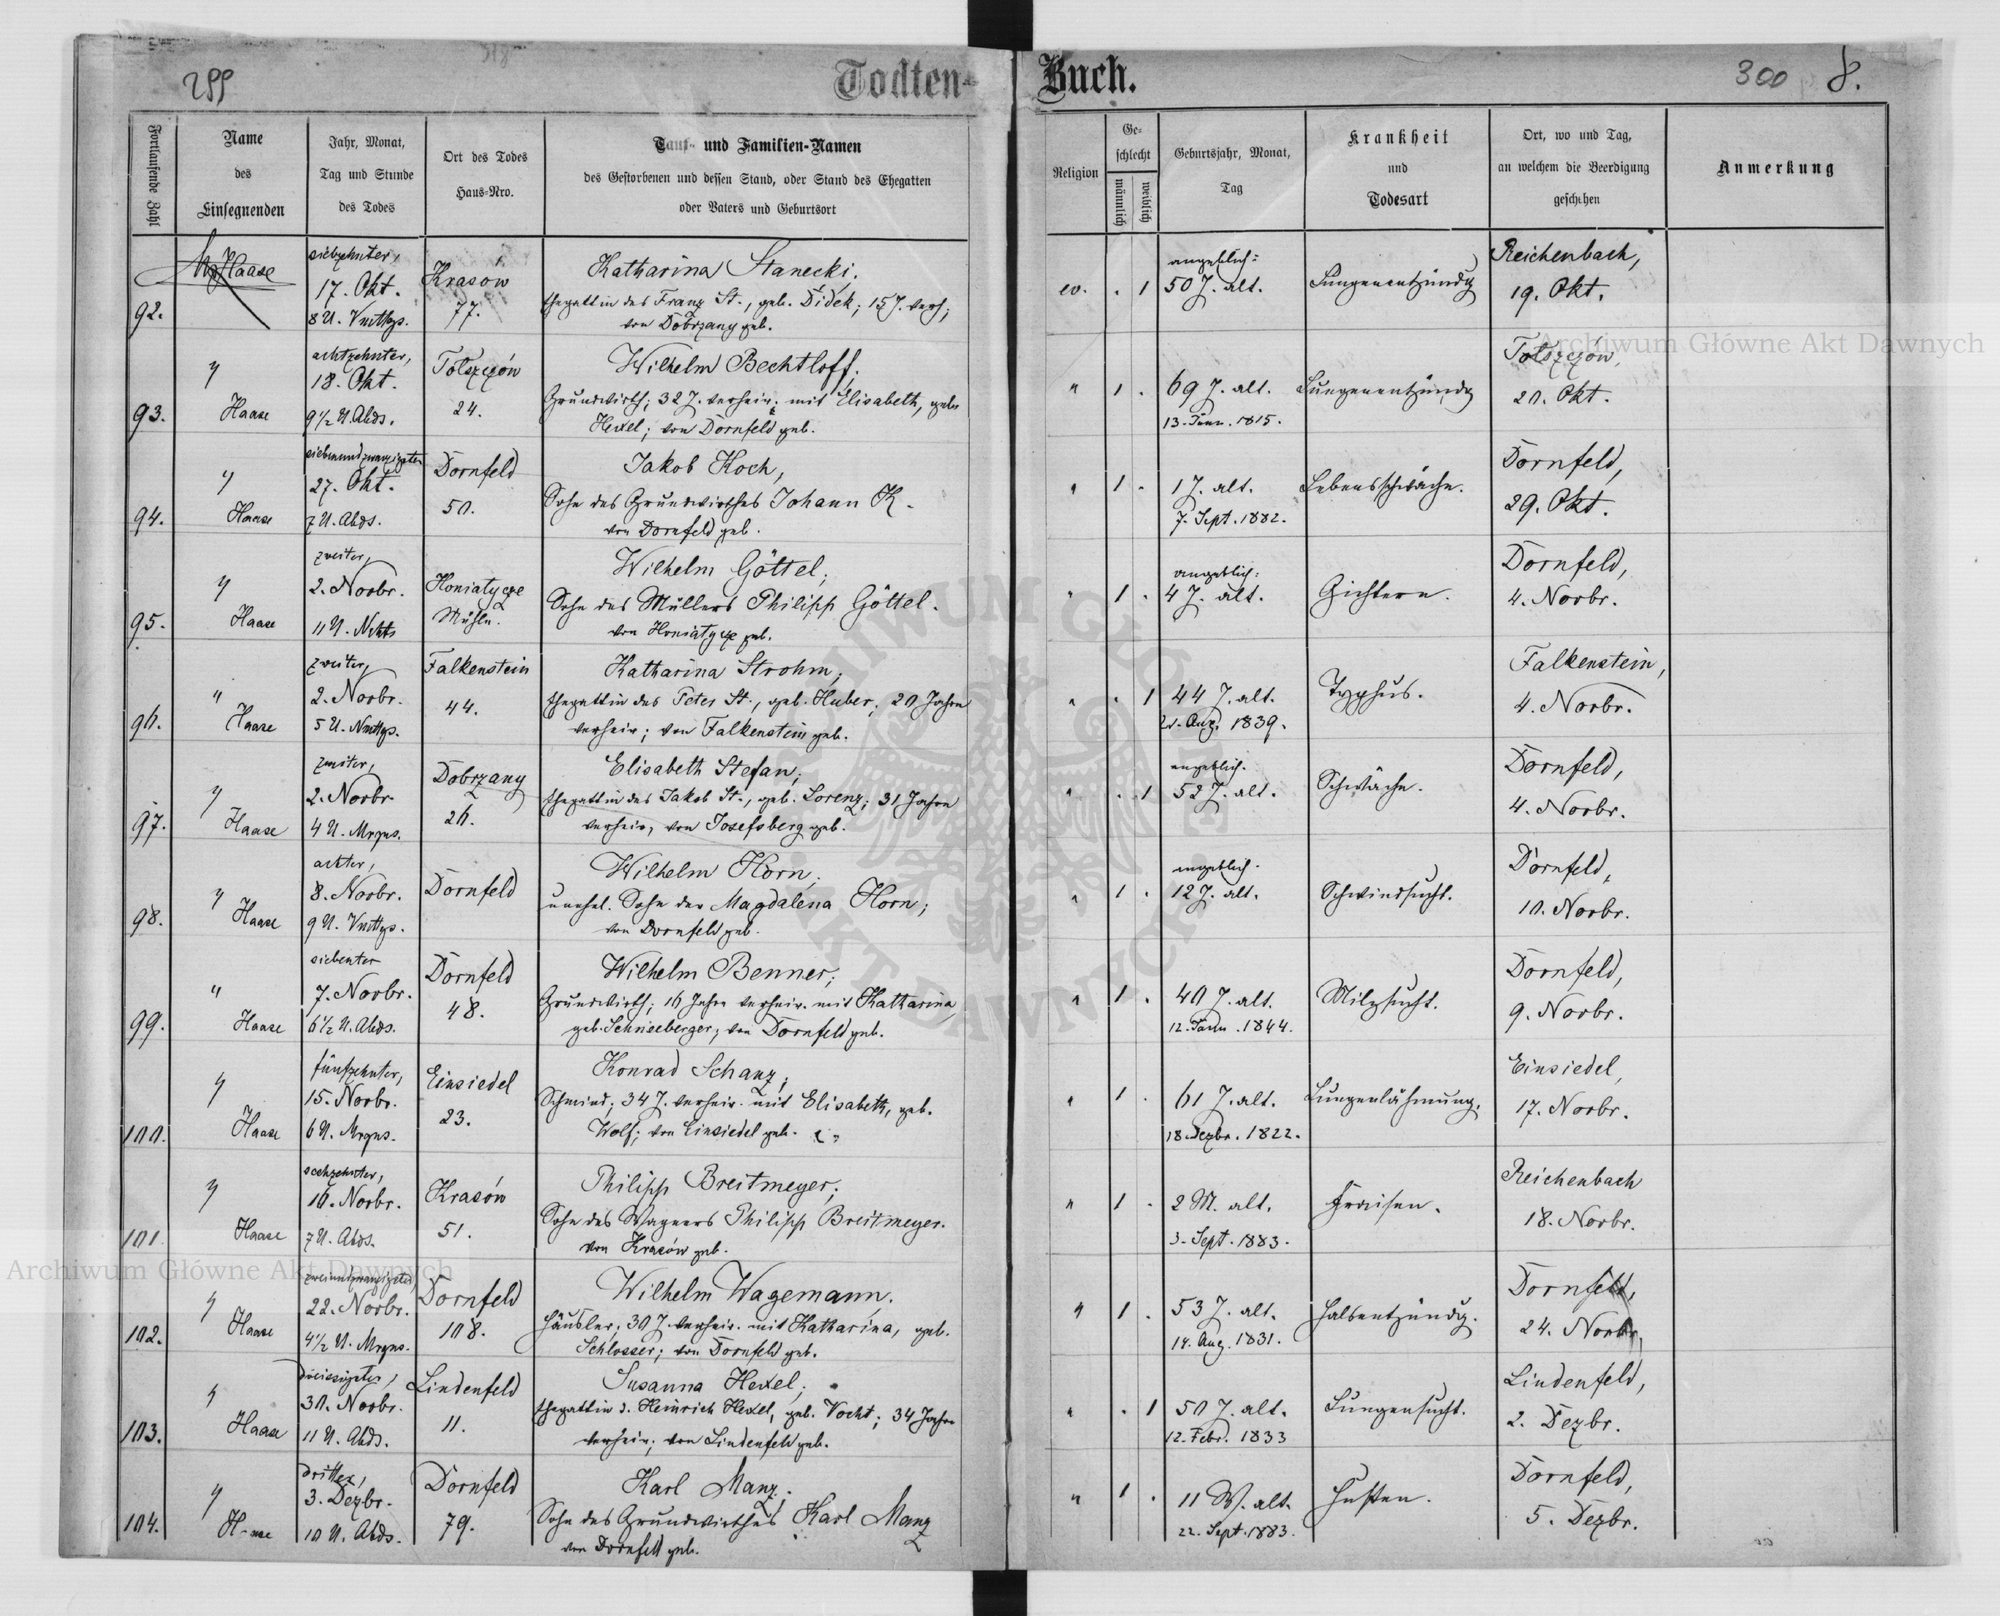 299
Todten-Buch.
300 8.
Fortlaufende Zahl
Name
des
Einsegnenden
Jahr, Monat,
Tag und Stunde
des Todes
Ort des Todes
Haus-Nro.
Tauf- und Familien-Namen
des Gestorbenen und dessen Stand, oder Stand des Ehegatten
oder Vaters und Geburtsort
Religion
Ge-
schlecht
männlich
weiblich
Geburtsjahr, Monat,
Tag
Krankheit
und
Todesart
Ort, wo und Tag,
an welchem die Beerdigung
geschehen
Anmerkung
92.
Haase
siebzehnter,
17. Okt.
8 U. Vmttgs.
Krasów
77.
Katharina Stanecki.
Ehegattin des Franz St., geb. Didek; 15 J. verh;
von Dobrzany geb.
ev. . 1
angeblich:
50 J. alt.
Lungenentzündg
Reichenbach,
19. Okt.
93.
" Haase
achtzehnter,
18. Okt.
9 1/2 U. Abds.
Tołszczów
24.
Wilhelm Bechtloff.
Grundwirth; 32 J. verheir. mit Elisabeth, geb.
Hexel; von Dornfeld geb.
" 1 .
69 J. alt.
13. Jänn. 1815.
Lungenentzündg
Tołszczów,
20. Okt.
94.
" Haase
siebenundzwanzigster
27. Okt.
7 U. Abds.
Dornfeld
50.
Jakob Koch,
Sohn des Grundwirthes Johann K.
von Dornfeld geb.
" 1 .
1 J. alt.
7. Sept. 1882.
Lebensschwäche.
Dornfeld,
29. Okt.
95.
" Haase
zweiter,
2. Novbr.
11 U. Nchts
Honiatycze
Mühle.
Wilhelm Göttel;
Sohn des Müllers Philipp Göttel.
von Honiatycze geb.
" 1 .
angeblich:
4 J. alt.
Gichtern.
Dornfeld,
4. Novbr.
96.
" Haase
zweiter,
2. Novbr.
5 U. Nmttgs.
Falkenstein
44.
Katharina Strohm;
Ehegattin des Peter St., geb. Huber; 20 Jahre
verheir; von Falkenstein geb.
" . 1
44 J. alt.
Aug. 1839.
Typhus.
Falkenstein,
4. Novbr.
97.
" Haase
zweiter,
2. Novbr.
4 U. Mrgns.
Dobrzany
26.
Elisabeth Stefan;
Ehegattin des Jakob St., geb. Lorenz; 31 Jahre
verheir, von Josefsberg geb.
" . 1
angeblich.
52 J. alt.
Schwäche.
Dornfeld,
4. Novbr.
98.
" Haase
achter,
8. Novbr.
9 U. Vmttgs.
Dornfeld
Wilhelm Horn;
unehel. Sohn der Magdalena Horn;
von Dornfeld geb.
" 1 .
angeblich.
12 J. alt.
Schwindsucht.
Dornfeld,
10. Novbr.
99.
" Haase
siebenter
7. Novbr.
6 1/2 U. Abds.
Dornfeld
48.
Wilhelm Benner;
Grundwirth; 16 Jahre verheir. mit Katharina
geb. Schneeberger; von Dornfeld geb.
" 1 .
40 J. alt.
12. Jänn. 1844.
Milzsucht.
Dornfeld,
9. Novbr.
100.
" Haase
fünfzehnter,
15. Novbr.
6 U. Mrgns.
Einsiedel
23.
Konrad Schanz;
Schmied; 34 J. verheir. mit Elisabeth, geb.
Wolf; von Einsiedel geb.
" 1 .
61 J. alt.
18. Dezbr. 1822.
Lungenlähmung.
Einsiedel,
17. Novbr.
101.
" Haase
sechzehnter,
16. Novbr.
7 U. Abds.
Krasów
51.
Philipp Breitmeyer;
Sohn des Wagners Philipp Breitmeyer.
von Krasów geb.
" 1 .
2 M. alt.
3. Sept. 1883.
Fraisen.
Reichenbach
18. Novbr.
102.
" Haase
zweiundzwanzigster,
22. Novbr.
4 1/2 U. Mrgns.
Dornfeld
108.
Wilhelm Wagemann.
Häusler; 30 J. verheir. mit Katharina, geb.
Schlosser; von Dornfeld geb.
" 1 .
53 J. alt.
14. Aug. 1831.
Halsentzündg.
Dornfeld,
24. Novbr.
103.
" Haase
dreissigster,
30. Novbr.
11 U. Abds.
Lindenfeld
11.
Susanna Hexel;
Ehegattin d. Heinrich Hexel, geb. Vocht; 34 Jahre
verheir; von Lindenfeld geb.
" . 1
50 J. alt.
12. Febr. 1833
Lungensucht.
Lindenfeld,
2. Dezbr.
104.
" Haase
dritter,
3. Dezbr.
10 U. Abds.
Dornfeld
79.
Karl Manz;
Sohn des Grundwirthes Karl Manz
von Dornfeld geb.
" 1 .
11 W. alt.
22. Sept. 1883.
Husten.
Dornfeld,
5. Dezbr.
Archiwum Główne Akt Dawnych
Archiwum Główne Akt Dawnych
ARCHIWUM GŁÓWNE AKT DAWNYCH